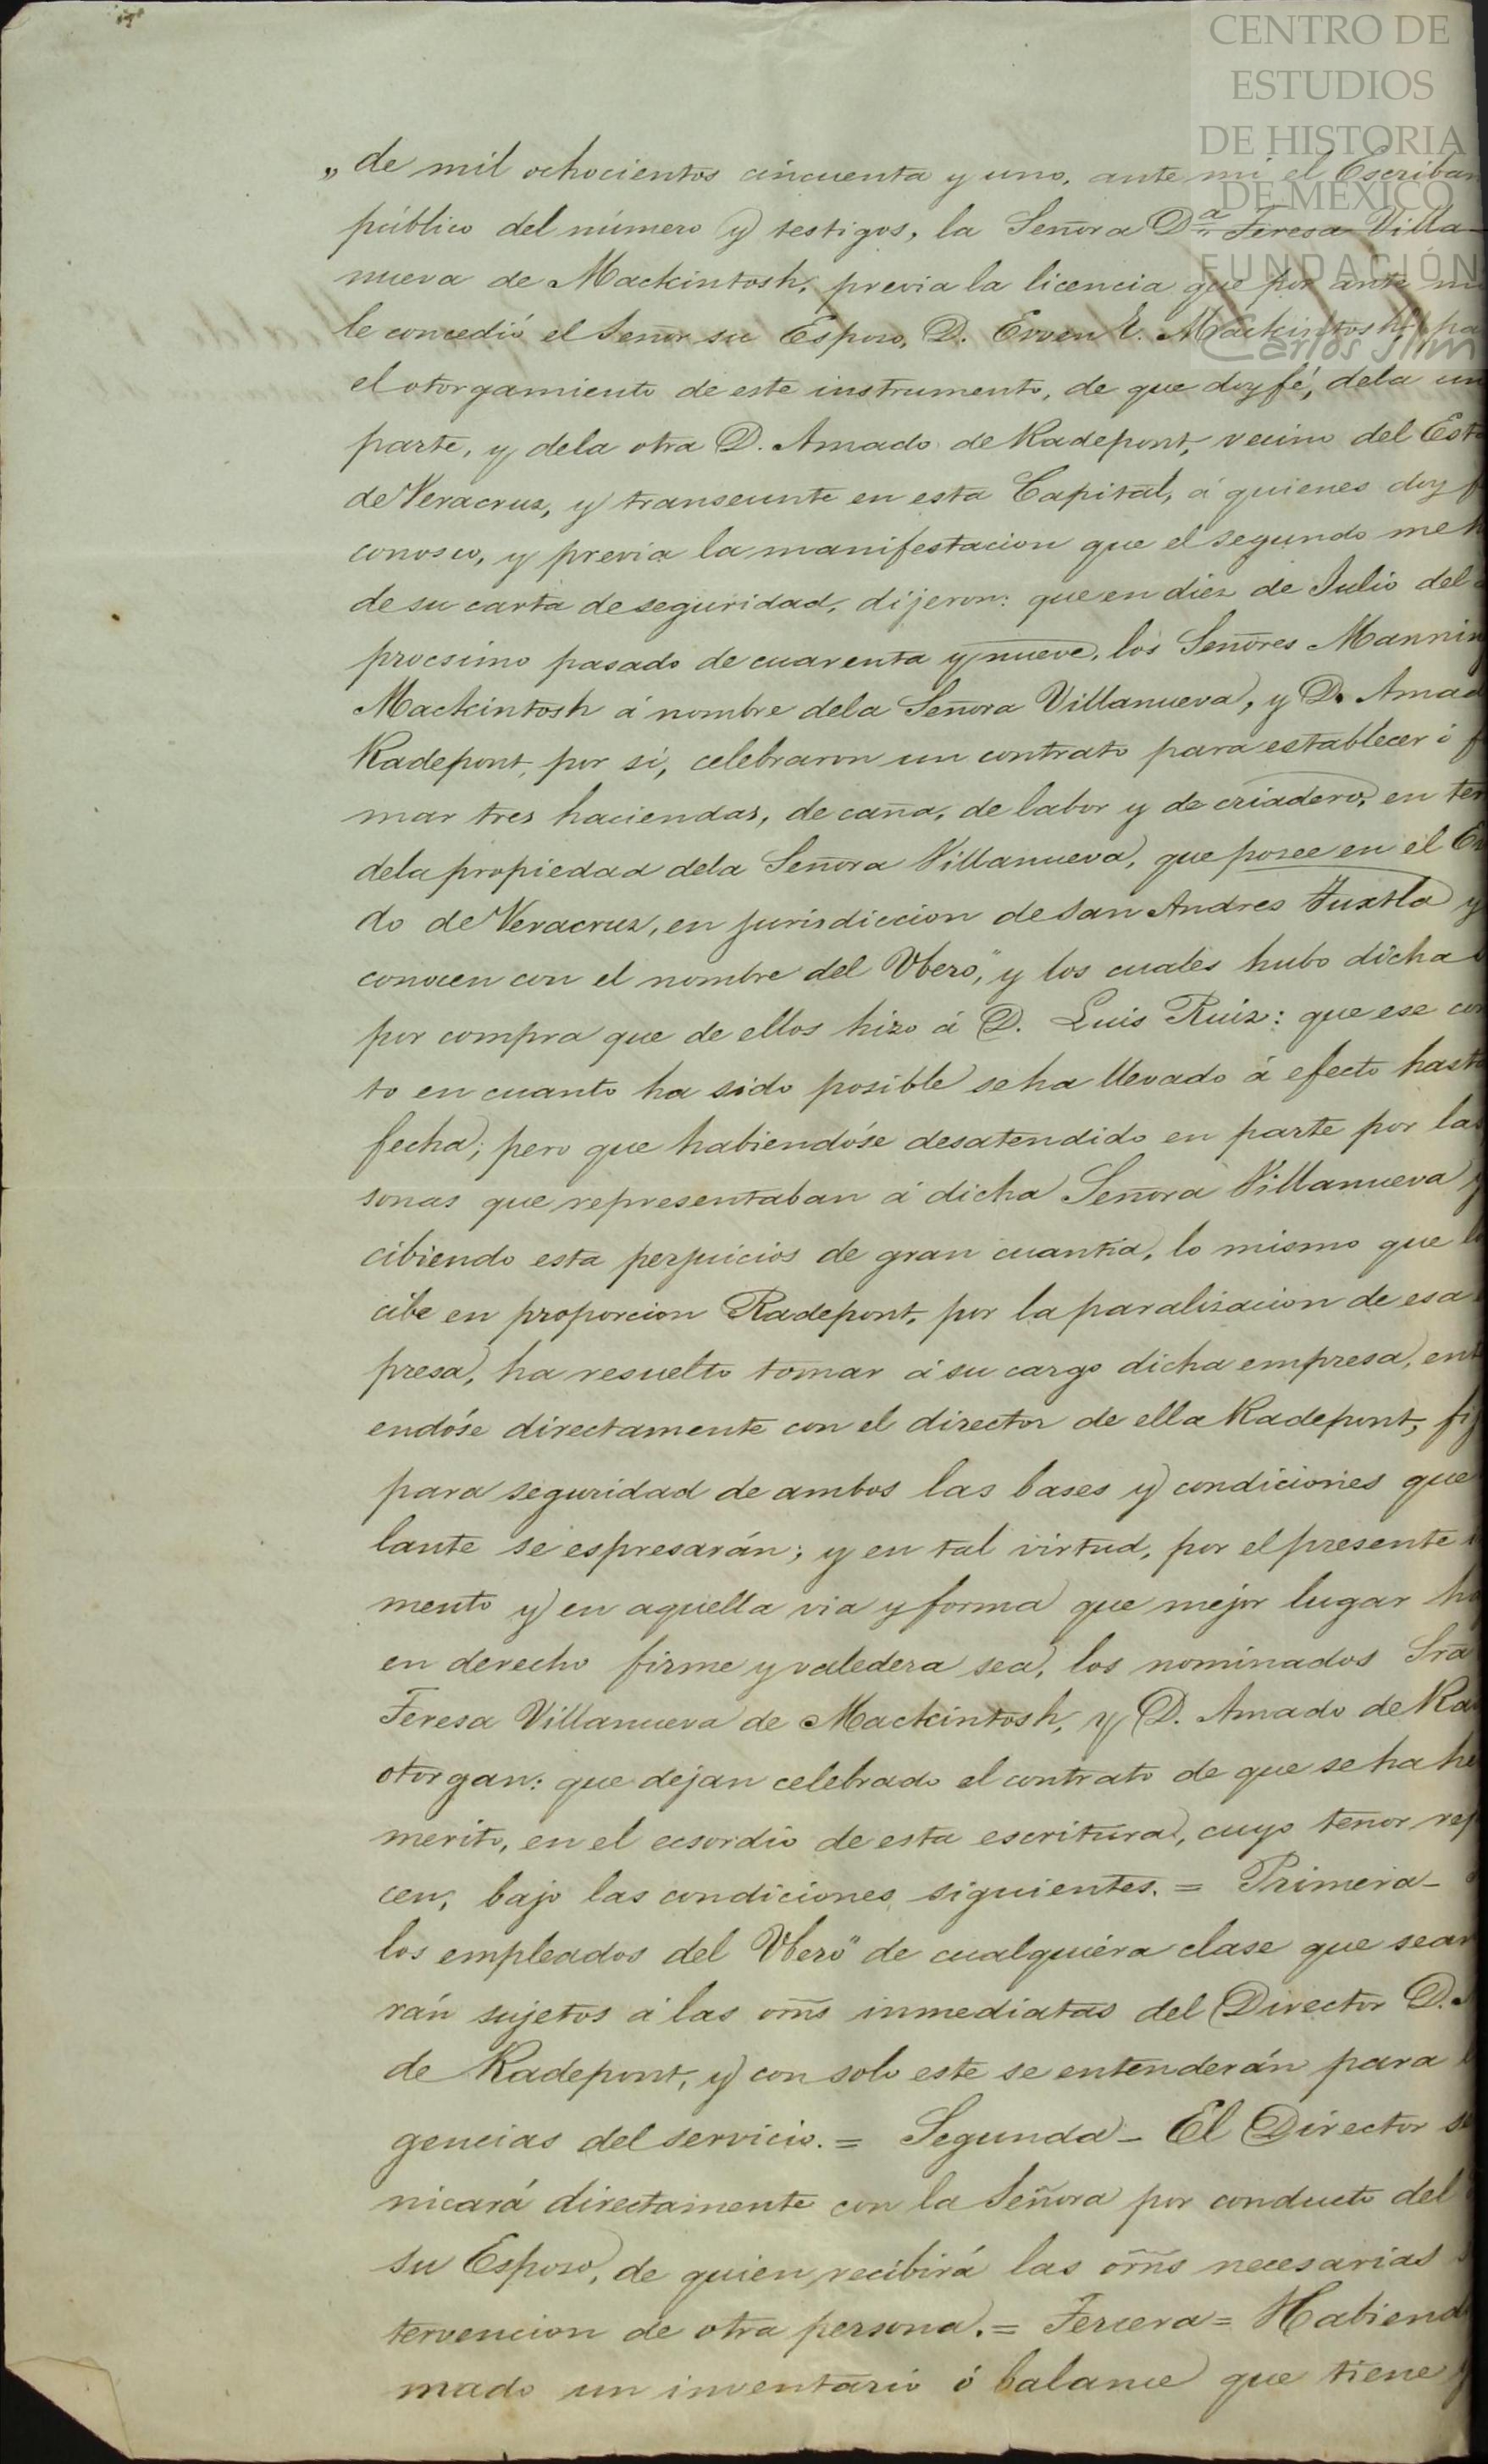 CENTRO DE
ESTUDIOS
DE HISTORIA
DE MÉXICO
FUNDACIÓN
Carlos Slim
„ de mil ochocientos cincuenta y uno, ante mi el Escriban
público del número y testigos, la Señora Dª Teresa Villa-
nueva de Mackintosh, previa la licencia que por ante mi
le concedió el Señor su Esposo, D. Ewen C. Mackintosh, pa
el otorgamiento de este instrumento, de que doy fé, dela un
parte, y dela otra D. Amado de Radepont, vecino del Est
de Veracruz, y transeunte en esta Capital, á quienes doy f
conosco, y previa la manifestacion que el segundo me h
de su carta de seguridad, dijeron: que en diez de Julio del
procsimo pasado de cuarenta y nueve, los Señores Mannin
Mackintosh á nombre dela Señora Villanueva, y D. Amad
Radepont, por sí, celebraron un contrato para establecer ó f
mar tres haciendas, de caña, de labor y de criadero, en ter
dela propiedad dela Señora Villanueva, que posee en el Es
do de Veracruz, en jurisdiccion de San Andres Tuxtla y
conocen con el nombre del Vbero," y los cuales hubo dicha
por compra que de ellos hizo á D. Luis Ruiz: que ese con
to en cuanto ha sido posible se ha llevado á efecto hasta
fecha; pero que habiendóse desatendido en parte por las
sonas que representaban á dicha Señora Villanueva y
cibiendo esta perjuicios de gran cuantía, lo mismo que lo
cibe en proporcion Radepont, por la paralizacion de esa
presa, ha resuelto tomar á su cargo dicha empresa, ent
endóse directamente con el director de ella Radepont, fij
para seguridad de ambos las bases y condiciones que
lante se espresarán; y en tal virtud, por el presente
mento y en aquella via y forma que mejor lugar ha
en derecho firme y valedera sea, los nominados Sra
Teresa Villanueva de Mackintosh, y D. Amado de Ra
otorgan: que dejan celebrado el contrato de que se ha he
merito, en el ecsordio de esta escritura, cuyo tenor rep
cen, bajo las condiciones siguientes. = Primera-
los empleados del Vbero" de cualquiera clase que sean
rán sujetos á las orns inmediatas del Director D.
de Radepont, y con solo este se entenderán para
gencias del servicio. = Segunda- El Director se
nicará directamente con la Señora por conducto del
su Esposo, de quien recibirá las orns necesarias
tervencion de otra persona. = Tercera = Habiend
mado un inventario ó balance que tiene